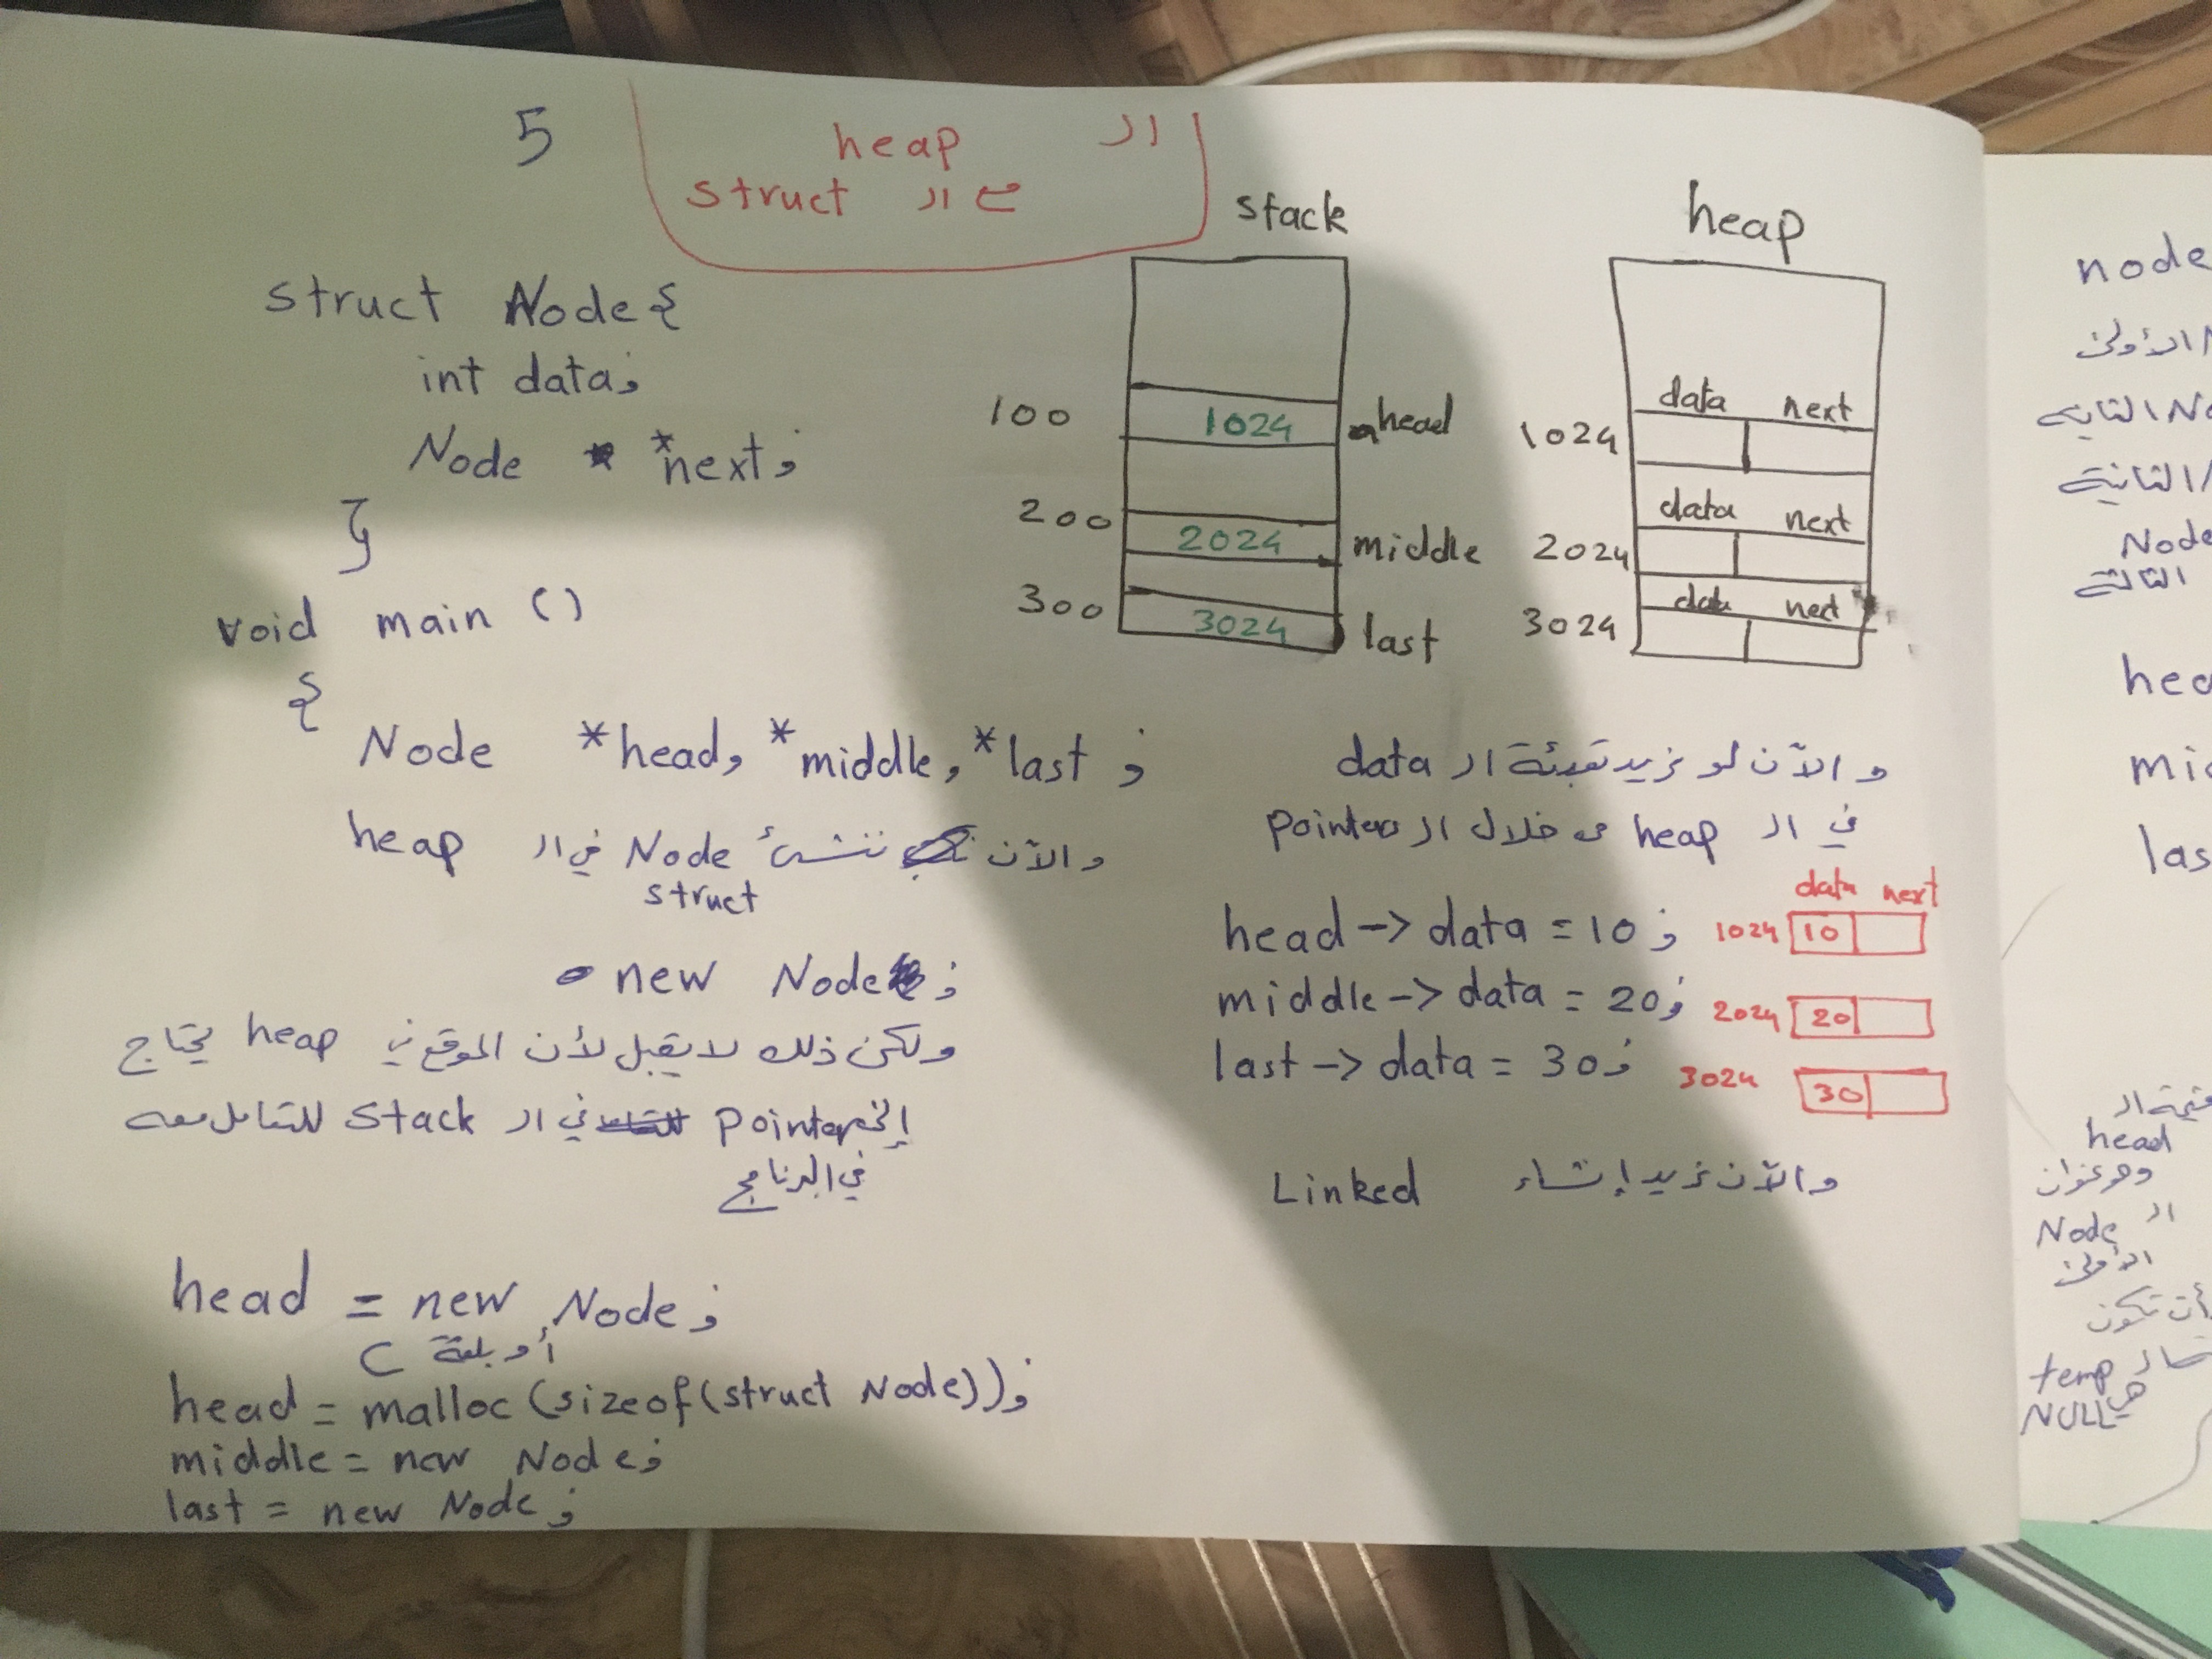 5
الـ heap
مع الـ struct
struct Node {
int data;
Node *next;
}
void main ()
{
Node *head, *middle, *last ;
والآن ننشئ Node في الـ heap
struct
new Node ;
ولكن ذلك لا يقبل لأن الموقع في heap يحتاج
إلى pointer في الـ stack للتعامل معه
في البرنامج
head = new Node ;
أو بلغة C
head = malloc (sizeof(struct Node));
middle = new Node ;
last = new Node ;
stack
100 1024 head
200 2024 middle
300 3024 last
heap
data next
1024
data next
2024
data next
3024
والآن لو نريد تعبئة الـ data
في الـ heap من خلال الـ pointers
data next
head -> data = 10 ; 1024 10
middle -> data = 20 ; 2024 20
last -> data = 30 ; 3024 30
والآن نريد إنشاء Linked
node
الأولى
التانية
الثانية
Node
الثالثة
قيمة الـ
head
وهو عنوان
الـ Node
الأولى
أن تكون
temp
هي NULL